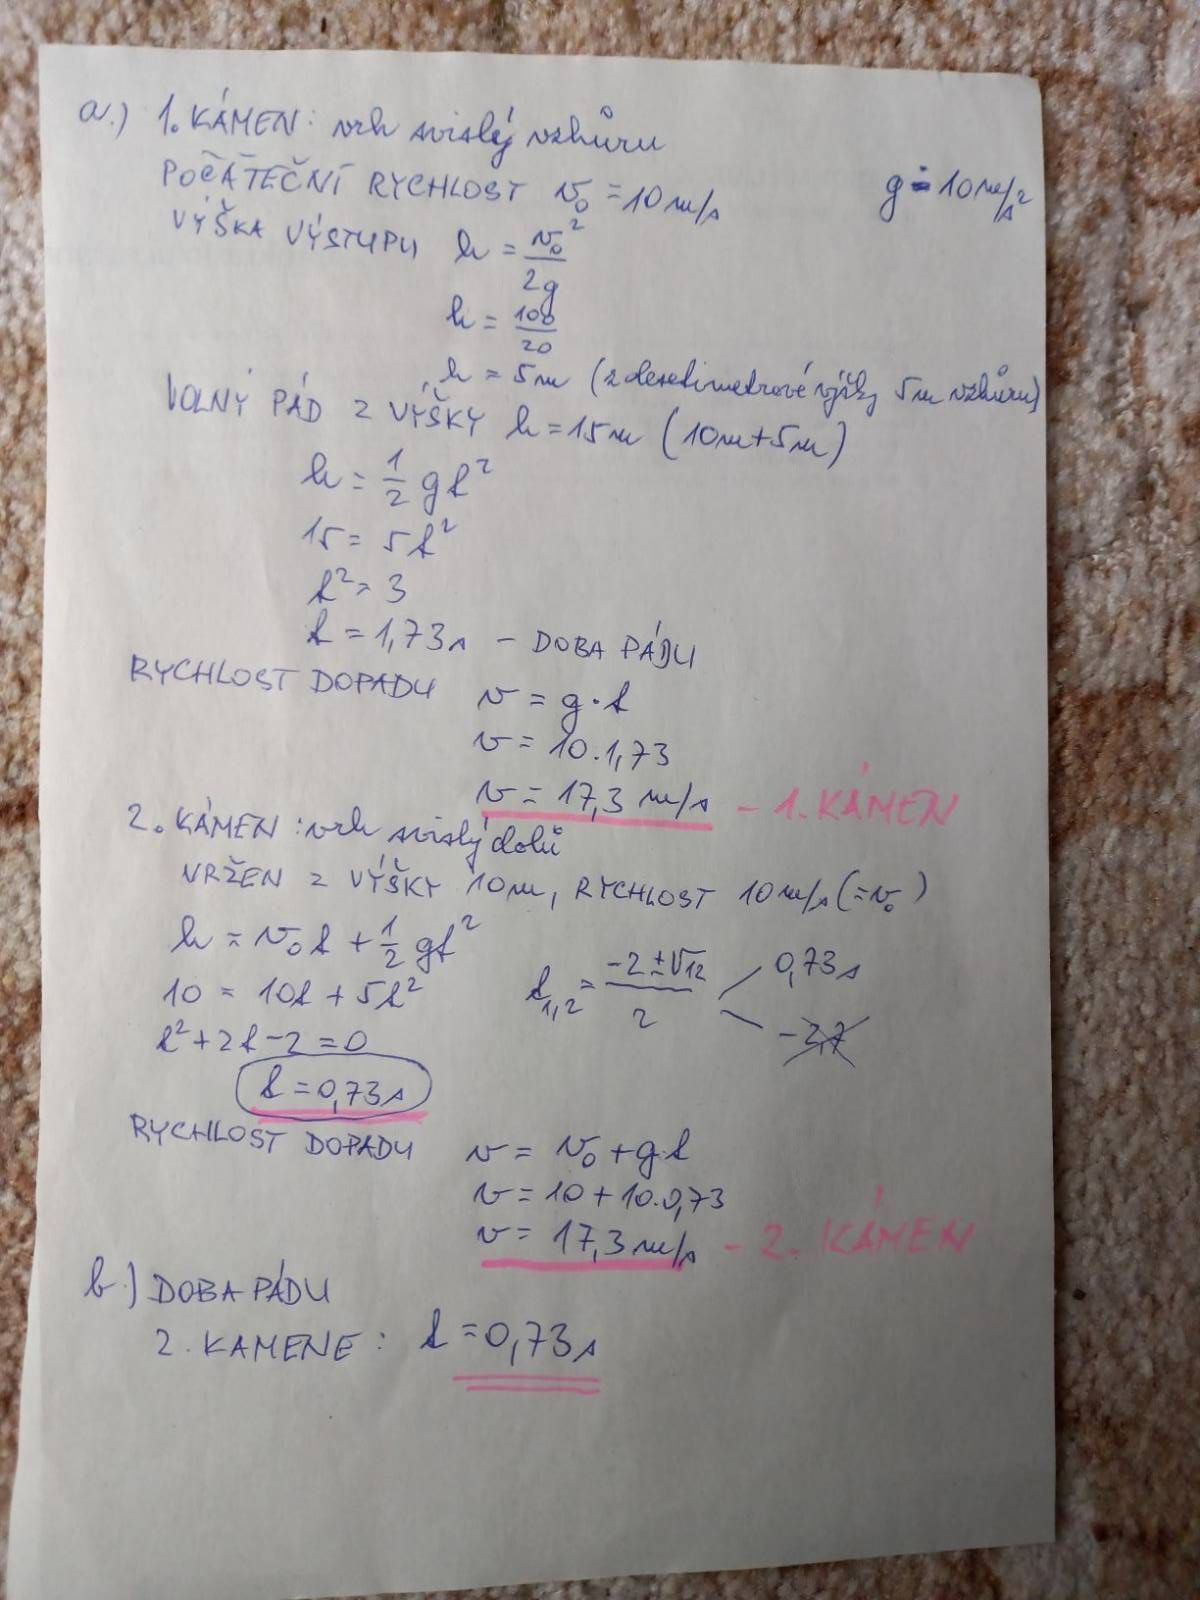 a.) 1. KÁMEN: vrh svislý vzhůru
POČÁTEČNÍ RYCHLOST v₀ = 10 m/s
g ≐ 10 m/s²
VÝŠKA VÝSTUPU h = v₀²/2g
h = 100/20
h = 5m (z desetimetrové výšky 5m vzhůru)
VOLNÝ PÁD Z VÝŠKY h = 15m (10m+5m)
h = 1/2 gt²
15 = 5t²
t² = 3
t = 1,73s - DOBA PÁDU
RYCHLOST DOPADU v = g·t
v = 10.1,73
v = 17,3 m/s - 1. KÁMEN
2. KÁMEN: vrh svislý dolů
VRŽEN Z VÝŠKY 10m, RYCHLOST 10 m/s (=v₀)
h = v₀t + 1/2 gt²
10 = 10t + 5t²
t² + 2t - 2 = 0
t₁,₂ = (-2 ± √12)/2
0,73s
-2,7
t = 0,73s
RYCHLOST DOPADU v = v₀ + g.t
v = 10 + 10.0,73
v = 17,3 m/s - 2. KÁMEN
b.) DOBA PÁDU
2. KAMENE: t = 0,73s